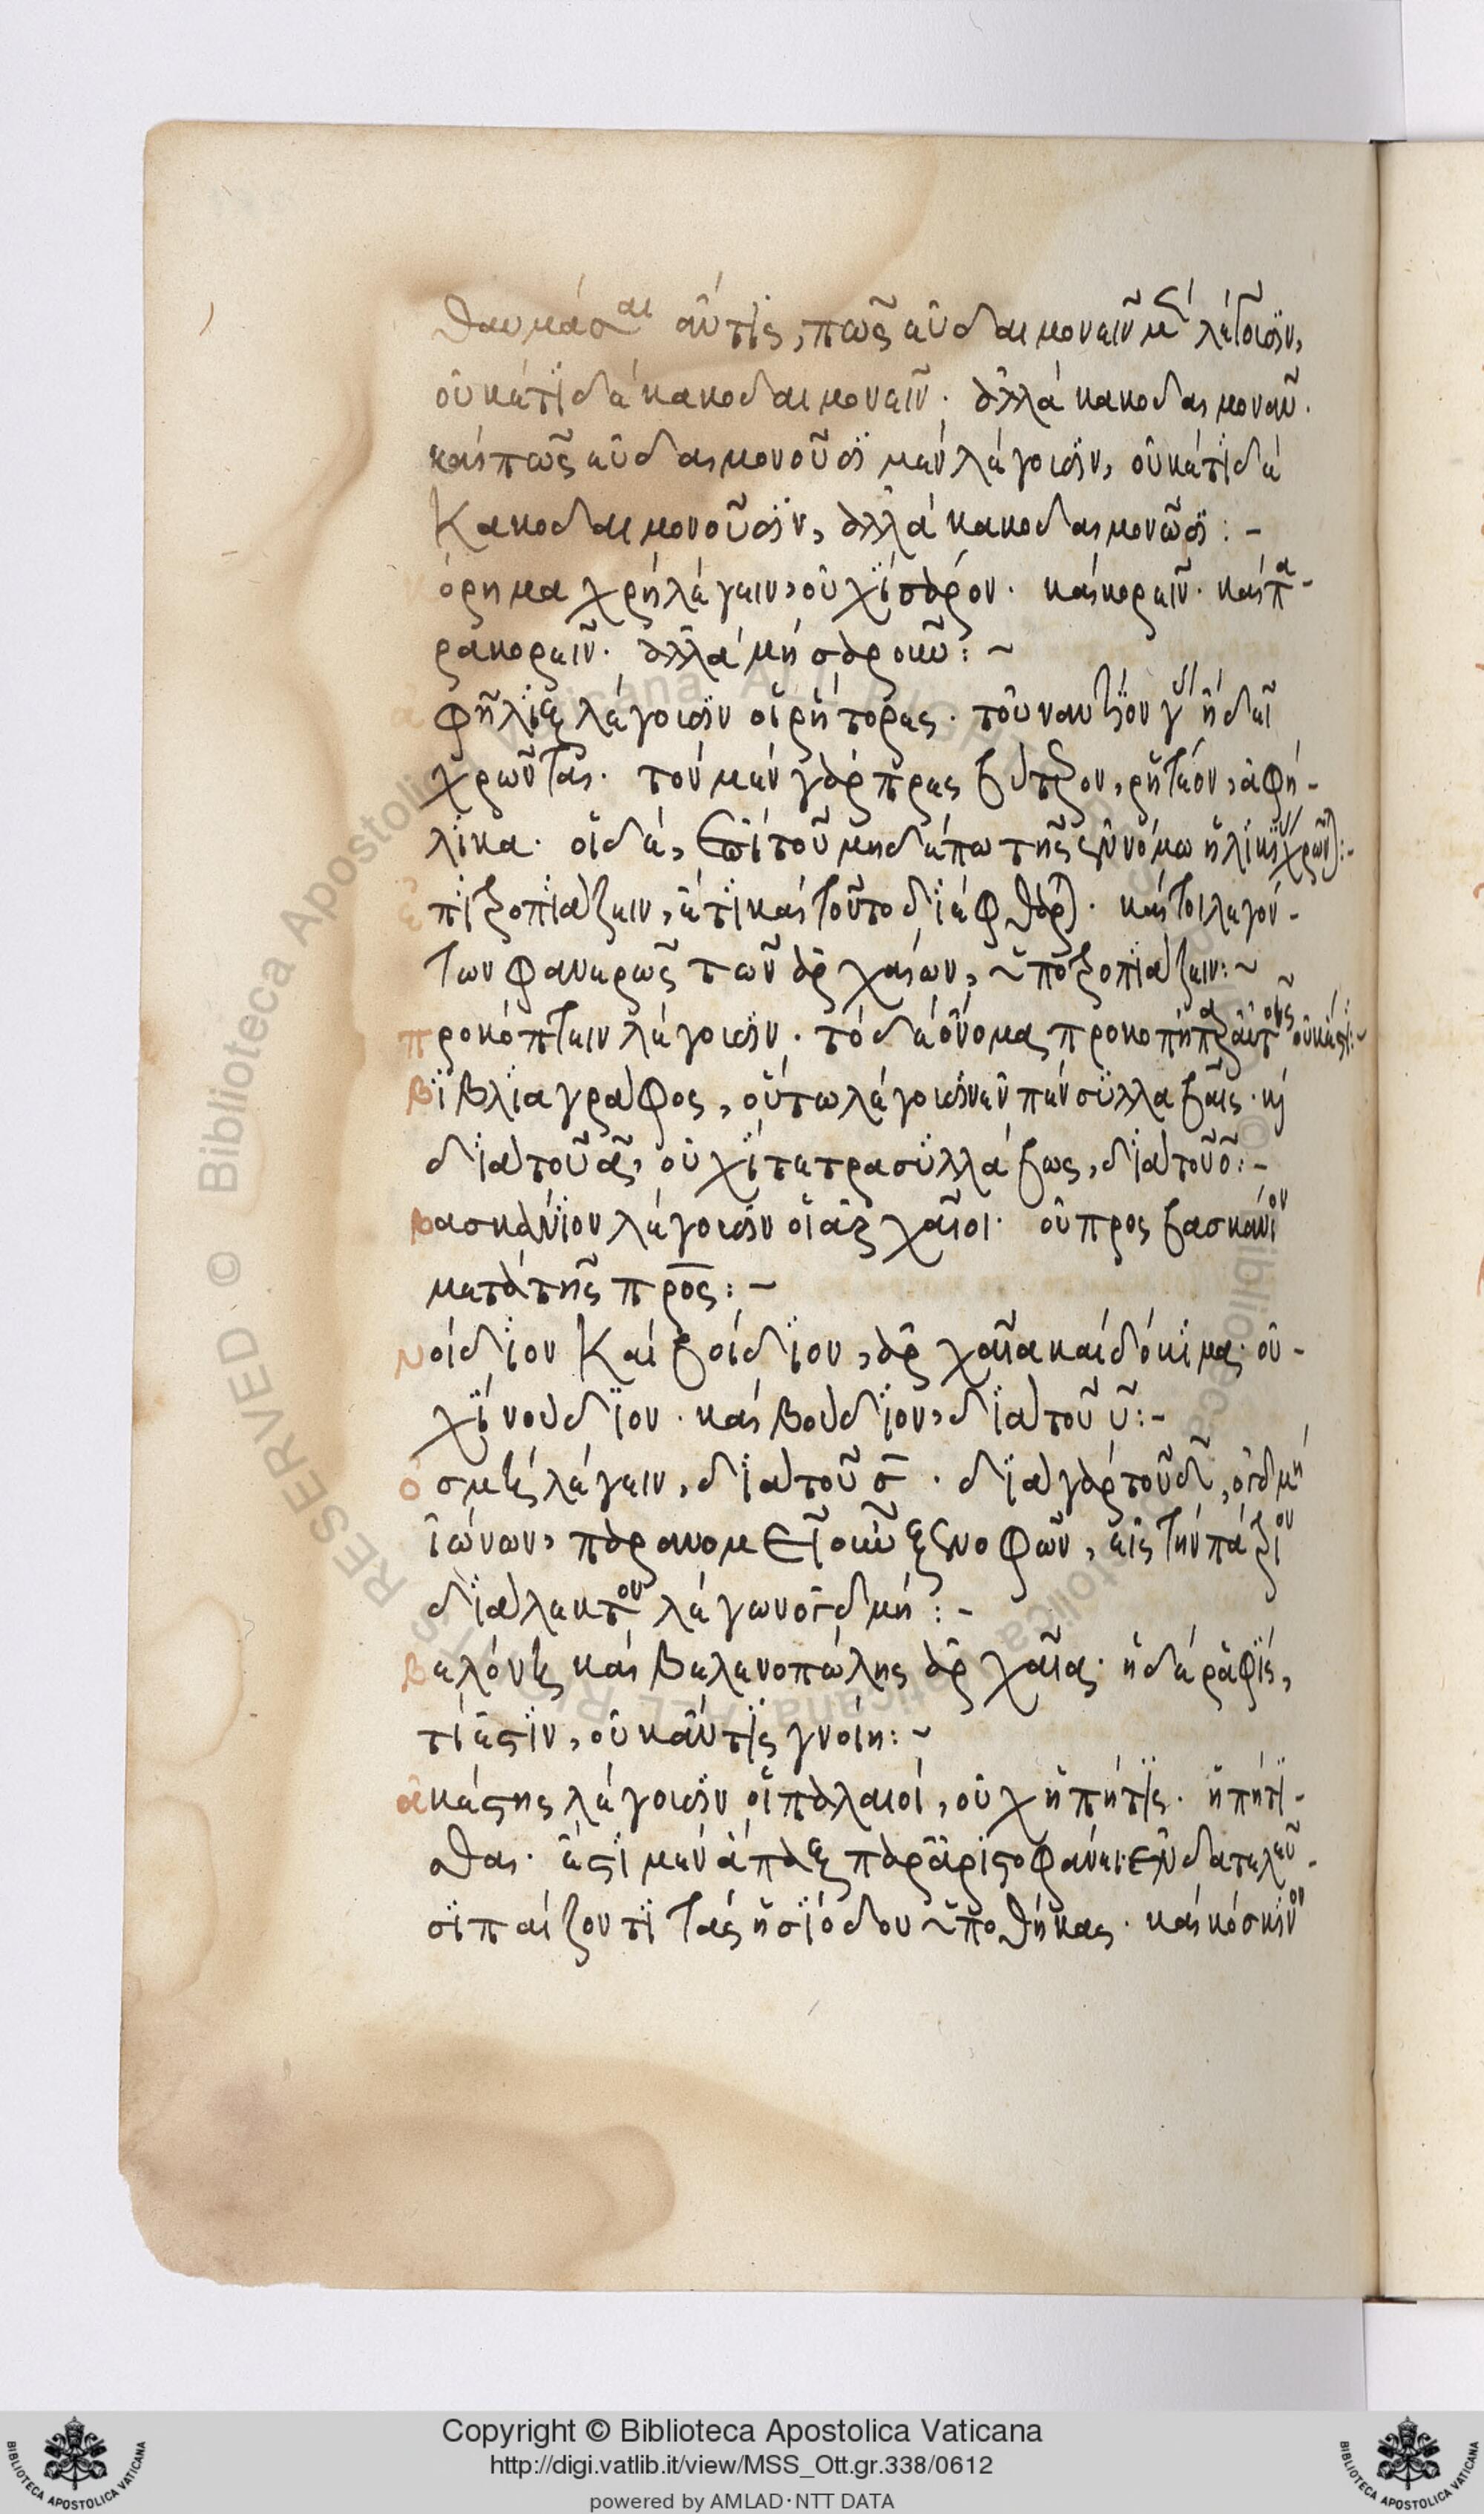 θαυμάσαι ἄν τις, πῶς εὐδαιμονεῖν μὲν λέγουσιν,
οὐκέτι δὲ κακοδαιμονεῖν. ἀλλὰ κακοδαιμονᾶν.
καὶ πῶς εὐδαιμονοῦσι μὲν λέγουσιν, οὐκέτι δὲ
κακοδαιμονοῦσιν, ἀλλὰ κακοδαιμονῶσι:-
όρημα χρὴ λέγειν, οὐχὶ σάρον. καὶ κορεῖν. καὶ πα-
ρακορεῖν. ἀλλὰ μὴ σαροῦν:~
ἀφῆλιξ λέγουσιν οἱ ῥήτορες. τοὐναντίον γὰρ ἢ δεῖ
χρῶνται. τὸν μὲν γὰρ πρεσβύτερον, ῥητέον, ἀφή-
λικα. οἱ δὲ, ἐπὶ τοῦ μηδέπω τῆς ἐννόμω ἡλικίας χρῶνται:-
ἐπιτροπιάζειν, ἔτι καὶ τοῦτο διέφθαρται. καίτοι λεγόν-
των φανερῶς τῶν ἀρχαίων, ὑποτροπιάζειν:~
προκόπτειν λέγουσιν. τὸ δὲ ὄνομα προκοπὴ παρ' αὐτοῖς οὐκ ἔστι:~
βιβλιαγράφος, οὕτω λέγουσιν ἐν πέν συλλαβαῖς. καὶ
διὰ τοῦ α, οὐχὶ τετρασυλλάβως, διὰ τοῦ ο:-
βασκάνιον λέγουσιν οἱ ἀρχαῖοι. οὐ προσβασκάνιον
μετὰ τῆς πρός:~
νοίδιον καὶ βοίδιον, ἀρχαῖα καὶ δόκιμα. οὐ-
χὶ νούδιον. καὶ βούδιον, διὰ τοῦ υ:-
ὀσμὲς λέγειν, διὰ τοῦ σ. διὰ γὰρ τοῦ δ, ὀδμὴ
ἰώνων, παρανομεῖ οὖν ξενοφῶν, εἰς τὴν πάτριον
διάλεκτον λέγων ὀδμή:-
βελόνη καὶ βελενοπώλης ἀρχαῖα. ἡ δὲ ῥαφὶς,
τί ἐστιν, οὐκ ἄν τις γνοίη:~
ἀκέστης λέγουσιν οἱ παλαιοί, οὐχ ἠπητίς. ἠπήτι-
σθαι. ἔστι μὲν ἅπαξ παρ' ἀριστοφάνει ἐν δαιταλεῦ-
σι παίζοντι τὰς ἡσιόδου ὑποθήκας. καὶ κόσκινον